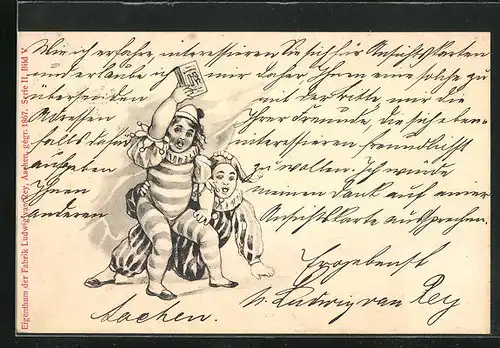 Wie ich erfahre interessieren Sie sich für Ansichtskarten
und erlaube ich mir daher Ihnen eine solche zu
übersenden mit der Bitte, mir die
Adressen Ihrer Freunde, die sich eben-
falls dafür interessieren freundlichst
aufgeben zu wollen. Ich würde
Ihnen meinen Dank auf einer
anderen Ansichtskarte aussprechen.
Ergebenst
Ludwig van Rey
Aachen.
Eigenthum der Fabrik Ludwig van Rey, Aachen, gegr. 1867. Serie II, Bild V.